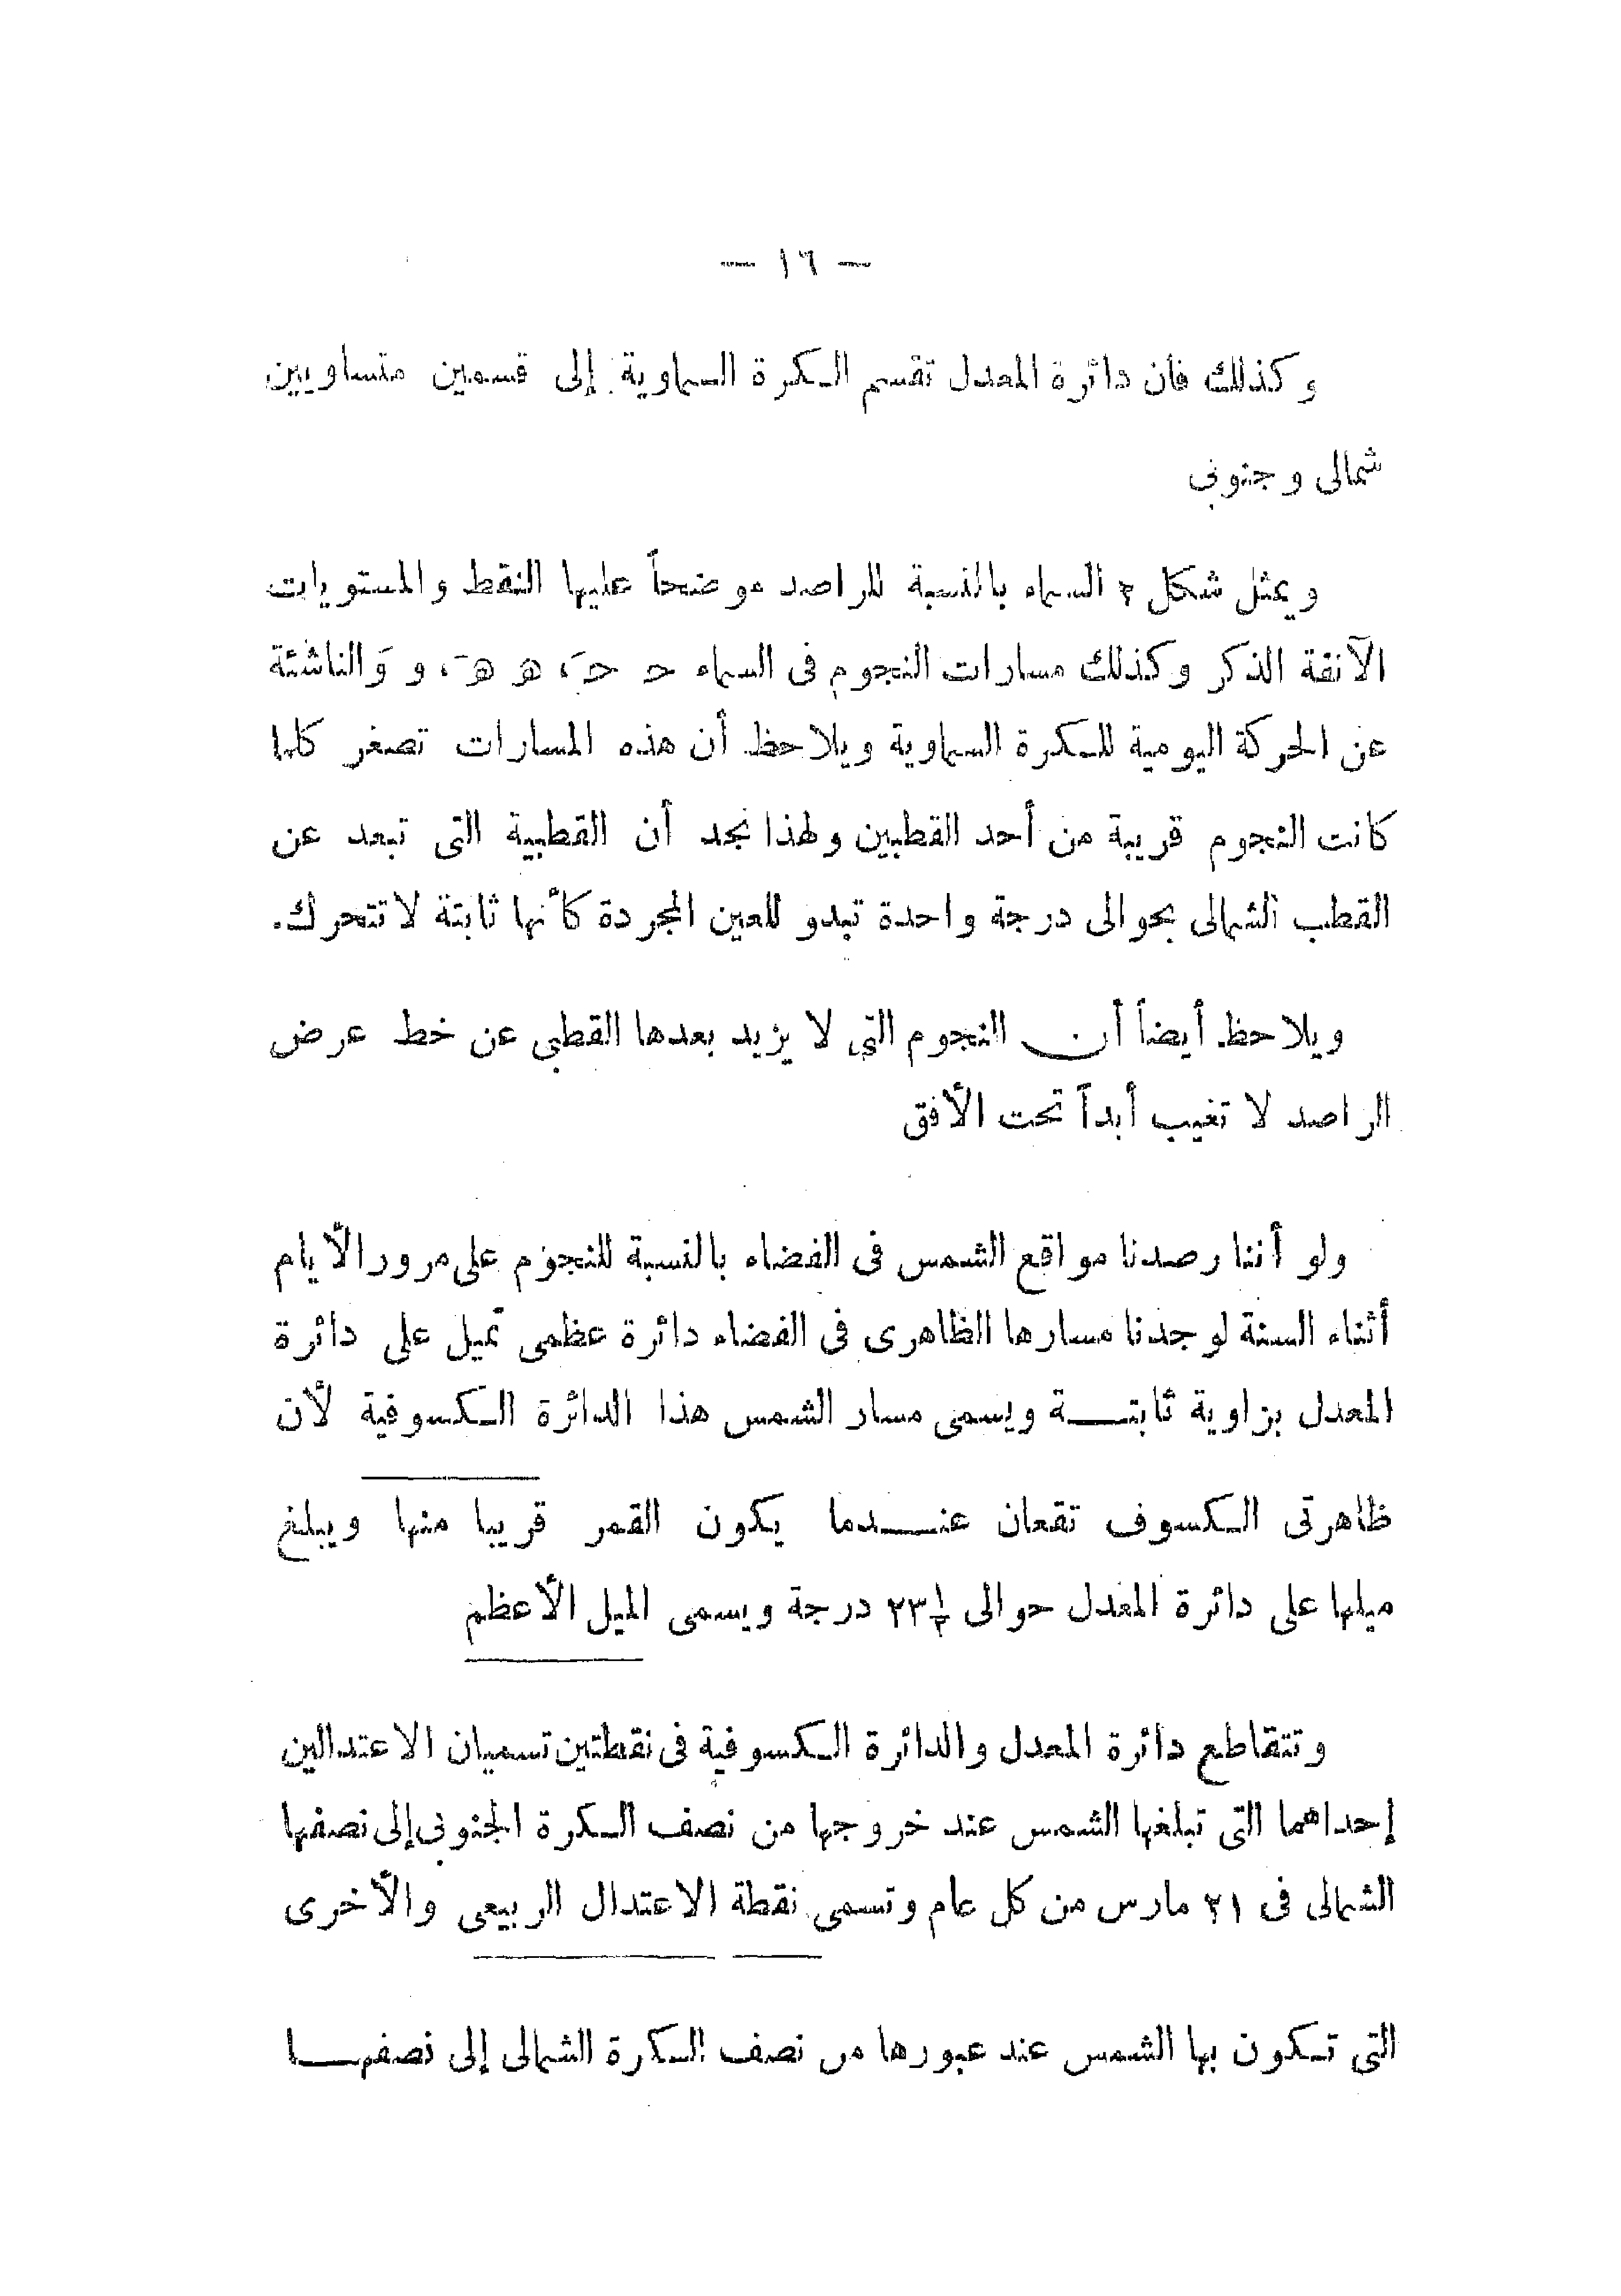 — ١٦ —
وكذلك فان دائرة المعدل تقسم الكرة السماوية إلى قسمين متساويين
شمالى وجنوبى
ويمثل شكل السماء بالنسبة للراصد موضحاً عليها النقط والمستويات
الآنفة الذكر وكذلك مسارات النجوم فى السماء حـ حـَ، هـ هـَ، و وَ الناشئة
عن الحركة اليومية للكرة السماوية ويلاحظ أن هذه المسارات تصغر كلما
كانت النجوم قريبة من أحد القطبين ولهذا نجد أن القطبية التى تبعد عن
القطب الشمالى بحوالى درجة واحدة تبدو للعين المجردة كأنها ثابتة لا تتحرك.
ويلاحظ أيضاً أن النجوم التى لا يزيد بعدها القطبى عن خط عرض
الراصد لا تغيب أبداً تحت الأفق
ولو أننا رصدنا مواقع الشمس فى الفضاء بالنسبة للنجوم على مرور الأيام
أثناء السنة لوجدنا مسارها الظاهرى فى الفضاء دائرة عظمى تميل على دائرة
المعدل بزاوية ثابتـــة ويسمى مسار الشمس هذا الدائرة الكسوفية لأن
ظاهرتى الكسوف تقعان عنـــدما يكون القمر قريبا منها ويبلغ
ميلها على دائرة المعدل حوالى ٢٣½ درجة ويسمى الميل الأعظم
وتتقاطع دائرة المعدل والدائرة الكسوفية فى نقطتين تسميان الاعتدالين
إحداهما التى تبلغها الشمس عند خروجها من نصف الكرة الجنوبى إلى نصفها
الشمالى فى ٢١ مارس من كل عام وتسمى نقطة الاعتدال الربيعى والأخرى
التى تكون بها الشمس عند عبورها من نصف الكرة الشمالى إلى نصفهـــا